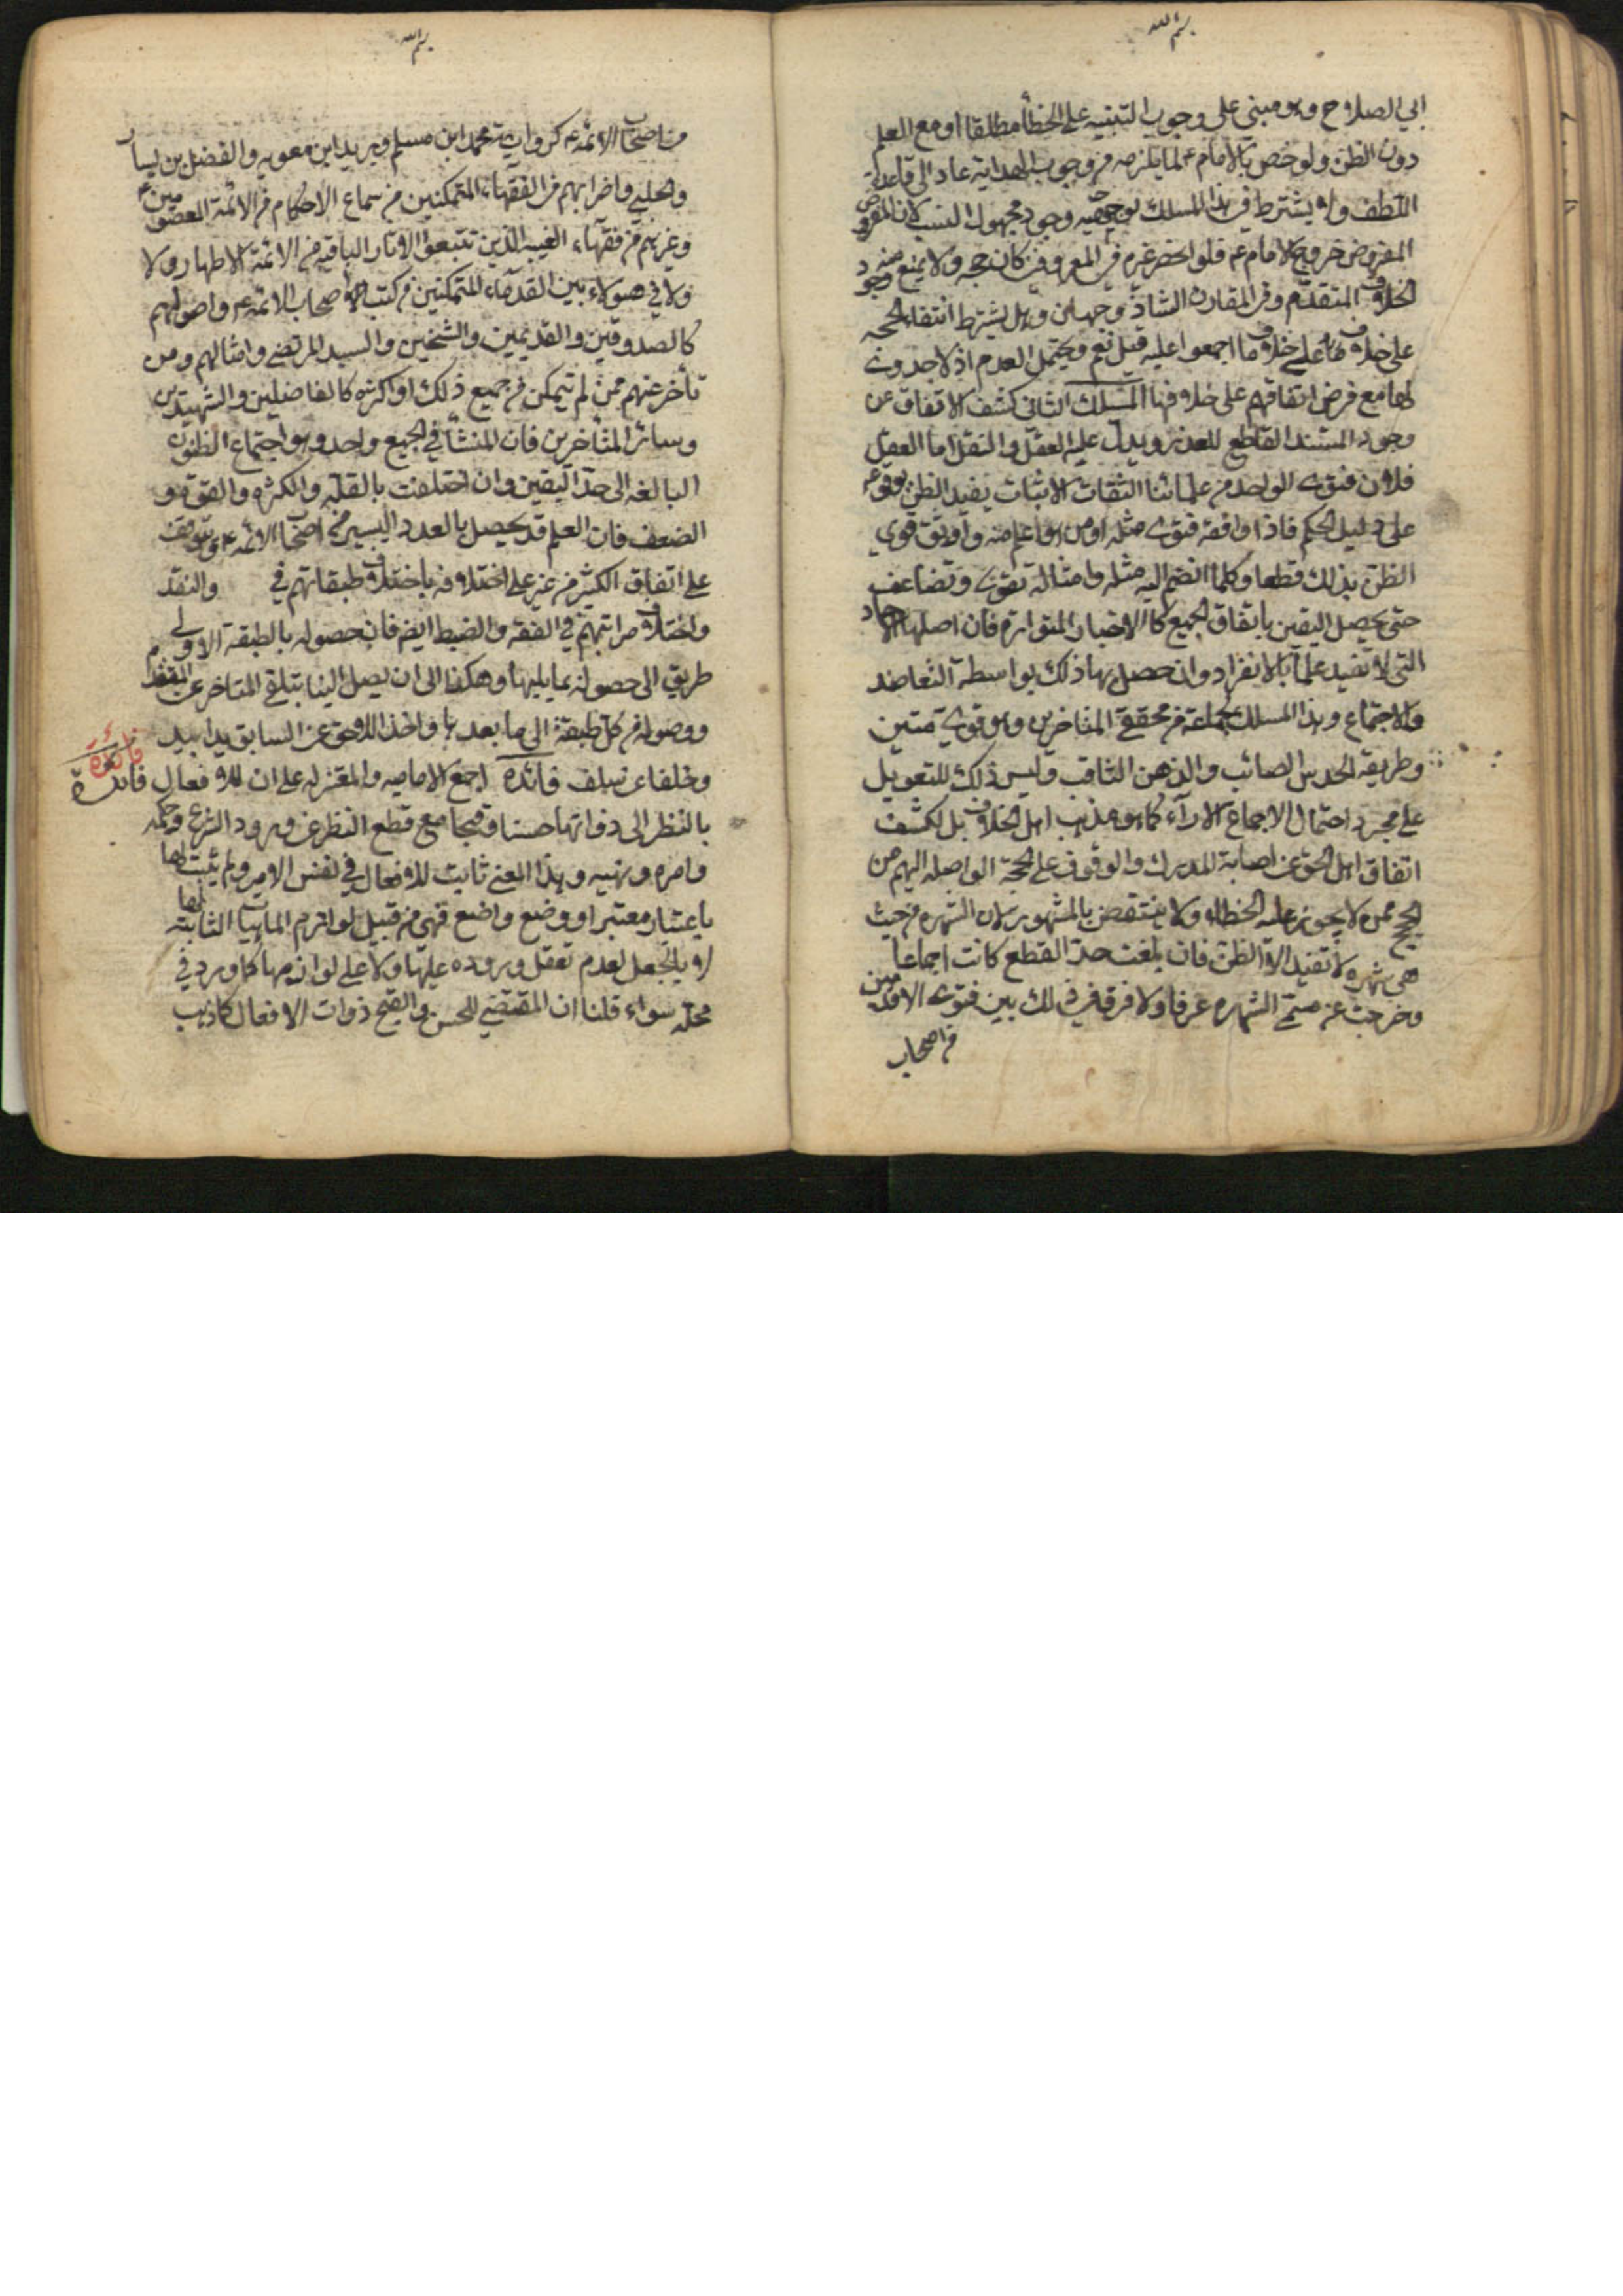 بسم الله
ابي الصلاح وهو مبني على وجوب التنبيه على الخطأ مطلقا او مع العلم
دون الظن ولو خص بالامام ع لما يلزمه من وجوب الهداية عاد الى قاعدة
اللطف ولا يشترط في هذا المسلك بوجهيه وجود مجهول النسب لان المفروض
المفروض خروج الامام ع فلو انحصر غيره في المعروفين كان حجة ولا يمنع منه وجود
الخلاف المتقدم وفي المقارن الشاذ وجهان وهل يشترط انتفاء الحجة
على خلاف ما اجمعوا عليه قيل نعم ويحتمل العدم اذ لا جدوى
لها مع فرض اتفاقهم على خلافها المسلك الثاني كشف الاتفاق عن
وجود المستند القاطع للعذر ويدل عليه العقل والنقل اما العقل
فلان فتوى الواحد من علمائنا الثقات الاثبات يفيد الظن بوقوعه
على دليل الحكم فاذا وافقه فتوى مثله او من هو اعلم منه واوثق قوي
الظن بذلك قطعا وكلما انضم اليه مثله وامثاله تقوى وتضاعف
حتى يحصل اليقين باتفاق الجميع كالاخبار المتواترة فان اصلها الاحاد
التي لا تفيد علما بالانفراد وان حصل بها ذلك بواسطة التعاضد
والاجتماع وهذا المسلك لجماعة من محققي المتاخرين وهو قوي متين
وطريقه الحدس الصائب والذهن الثاقب وليس ذلك للتعويل
على مجرد احتمال الاجماع الاراء كما هو مذهب اهل الخلاف بل لكشف
اتفاق اهل الحق عن اصابة المدرك والوقوف على الحجة الواصلة اليهم من
الحجج ممن لا يجوز عليه الخطاء ولا ينتقض بالمشهور لان الشهرة من حيث
هي شهرة لا تفيد الا الظن فان بلغت حد القطع كانت اجماعا
وخرجت عن مسمى الشهرة عرفا ولا فرق في ذلك بين فتوى الاقدمين
من اصحاب
بسم الله
من اصحاب الائمة ع كروايت محمد ابن مسلم وبريد ابن معويه والفضل بن يسار
والحلبي واضرابهم من الفقهاء المتمكنين من سماع الاحكام من الائمة المعصومين ع
وغيرهم من فقهاء الغيبه الذين تتبعوا الاثار الباقيه من الائمة الاطهار ولا
ولا في هؤلاء بين القدماء المتمكنين من كتب اصحاب الائمة ع واصولهم
كالصدوقين والقديمين والشيخين والسيد المرتضى وامثالهم ومن
تأخر عنهم ممن لم يتمكن من جميع ذلك او اكثره كالفاضلين والشهيدين
وسائر المتأخرين فان المنشأ في الجميع واحد وهو اجتماع الظنون
البالغه الى حد اليقين وان اختلفت بالقله والكثره والقوة و
الضعف فان العلم قد يحصل بالعدد اليسير من اصحاب الائمه ع ويتوقف
على اتفاق الكثير من غيرهم على اختلافه باختلاف طبقاتهم في والنقد
واختلاف مراتبهم في الفقه والضبط ايضا فان حصوله بالطبقة الاولى
طريق الى حصوله بما يليها وهكذا الى ان يصل الينا بتلقي المتاخر عن المتقدم
ووصوله من كل طبقة الى ما بعدها واخذ اللاحق عن السابق يدا بيد
وخلفا عن سلف فائدة اجمع الاماميه والمعتزله على ان للافعال
فائدة
فائدة
بالنظر الى ذواتها حسنا وقبحا مع قطع النظر عن ورود الشرع وحكمه
وامره ونهيه وهذا المعنى ثابت للافعال في نفس الامر ولم يثبت لها
باعتبار معتبر او وضع واضع فهي من قبيل لوازم الماهيات الثابتة لها
لا بالجعل لعدم تعقل وروده عليها ولا على لوازمها كما ورد في
محله سواء قلنا ان المقتضي للحسن والقبح ذوات الافعال كما ذهب